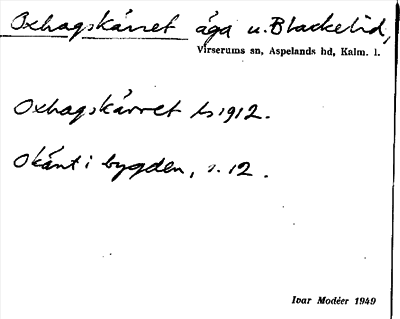 Oxhagskärret äga u. Blackelid,
Virserums sn, Aspelands hd, Kalm. l.
Oxhagskärret ls 1912.
Okänt i bygden, s. 12.
Ivar Modéer 1949